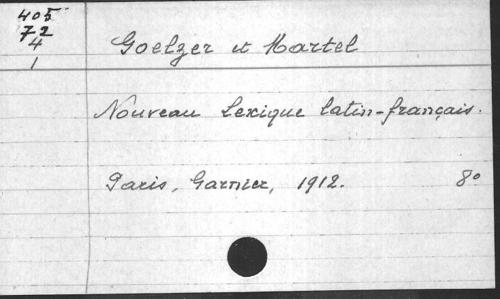 405
72
4
1
Goelzer et Martel
Nouveau Lexique latin-français.
Paris, Garnier, 1912. 8°